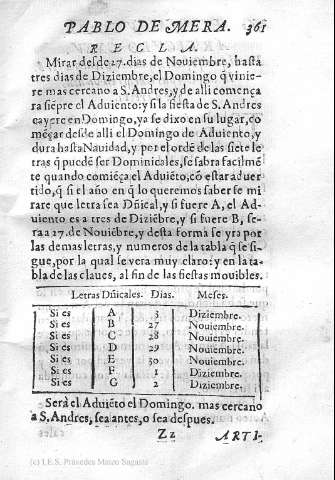 PABLO DE MERA. 361
REGLA.
Mirar desde 27. dias de Nouiembre, hasta
tres dias de Diziembre, el Domingo q̃ vinie-
re mas cercano a S. Andres, y de alli comença
ra siẽpre el Aduiento: y si la fiesta de S. Andres
cayere en Domingo, ya se dixo en su lugar, co
mẽçar desde alli el Domingo de Aduiento, y
dura hasta Nauidad, y por el ordẽ de las siete le
tras q̃ puedẽ ser Dominicales, se sabra facilmẽ
te quando comiẽça el Aduiẽto, cõ estar aduer
tido, q̃ si el año en q̃ lo queremos saber se mi
rare que letra sea Dñical, y si fuere A, el Ad-
uiento es a tres de Diziẽbre, y si fuere B, se-
ra a 27. de Nouiẽbre, y desta forma se yra por
las demas letras, y numeros de la tabla q̃ se si-
gue, por la qual se vera muy claro: y en la ta-
bla de las claues, al fin de las fiestas mouibles.
Letras Dñicales. Dias. Meses.
Si es A 3 Diziembre.
Si es B 27 Nouiembre.
Si es C 28 Nouiembre.
Si es D 29 Nouiembre.
Si es E 30 Nouiembre.
Si es F 1 Diziembre.
Si es G 2 Diziembre.
Sera el Aduiẽto el Domingo. mas cercano
a S. Andres, sea antes, o sea despues.
Zz ARTI-
(c) I.E.S. Práxedes Mateo Sagasta